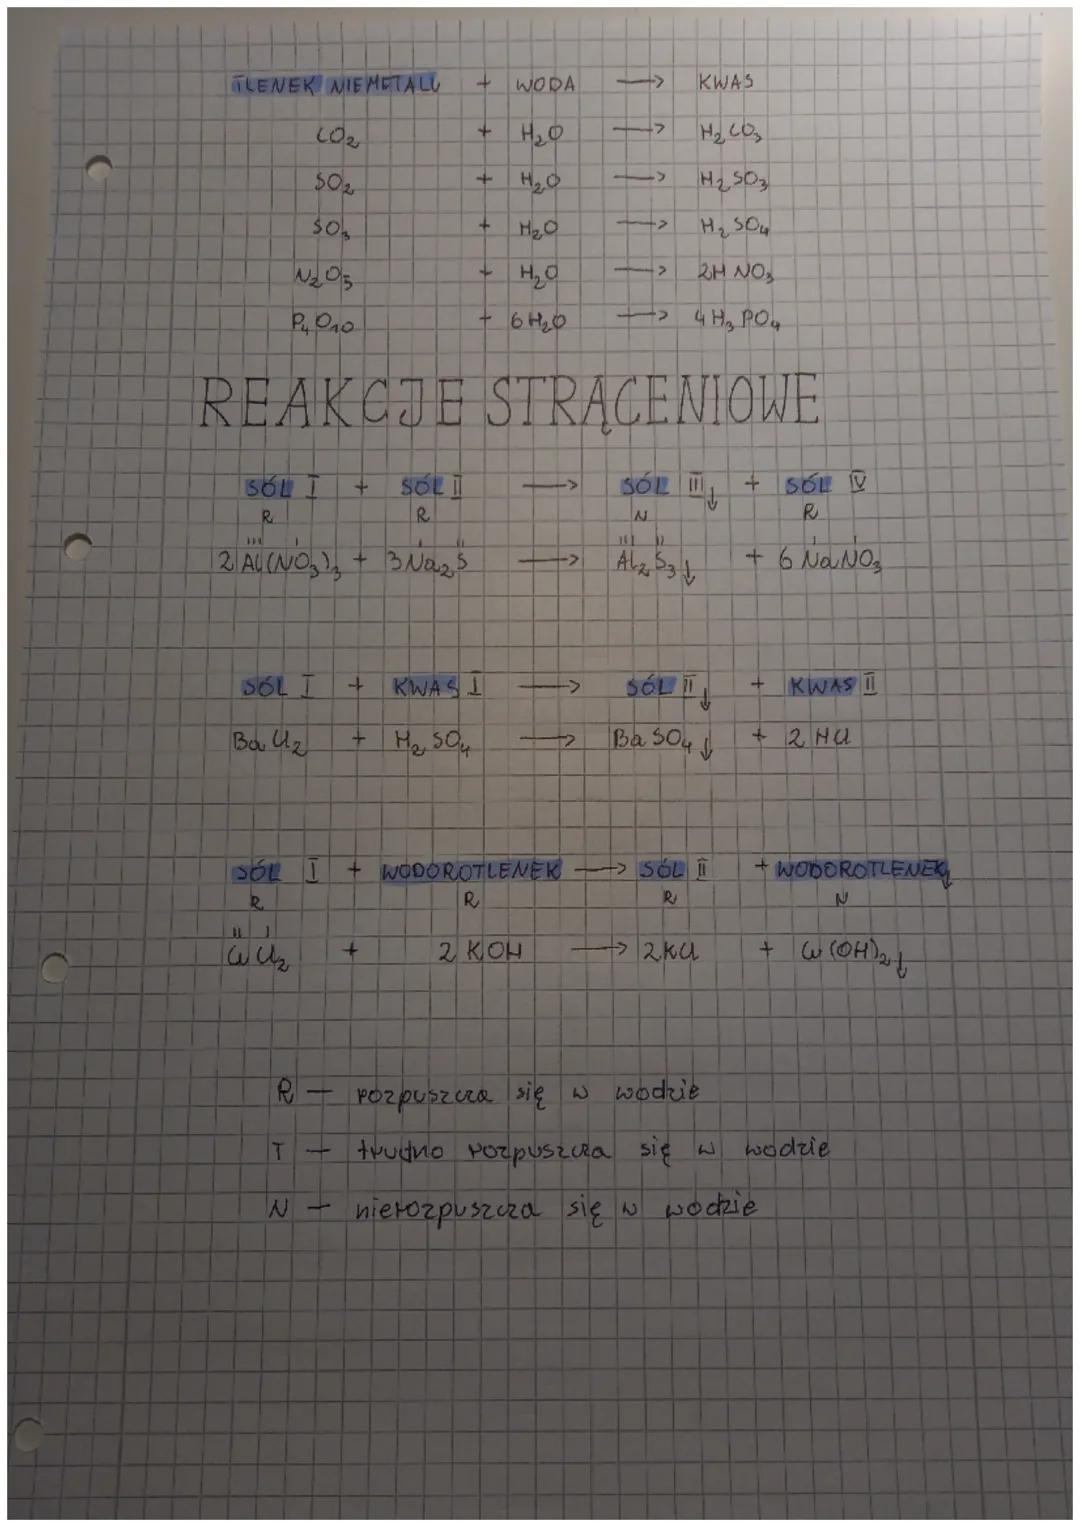 TLENEK NIEMETALU + WODA → KWAS
CO₂ + H₂O → H₂CO₃
SO₂ + H₂O → H₂SO₃
SO₃ + H₂O → H₂SO₄
N₂O₅ + H₂O → 2HNO₃
P₄O₁₀ + 6H₂O → 4H₃PO₄
REAKCJE STRĄCENIOWE
SÓL I + SÓL II → SÓL III↓ + SÓL IV
R R N R
III I I II III II I I
2Al(NO₃)₃ + 3Na₂S → Al₂S₃↓ + 6NaNO₃
SÓL I + KWAS I → SÓL II↓ + KWAS II
BaCl₂ + H₂SO₄ → BaSO₄↓ + 2HCl
SÓL I + WODOROTLENEK → SÓL II + WODOROTLENEK↓
R R R N
II I
CuCl₂ + 2KOH → 2KCl + Cu(OH)₂↓
R — rozpuszcza się w wodzie
T — trudno rozpuszcza się w wodzie
N — nierozpuszcza się w wodzie